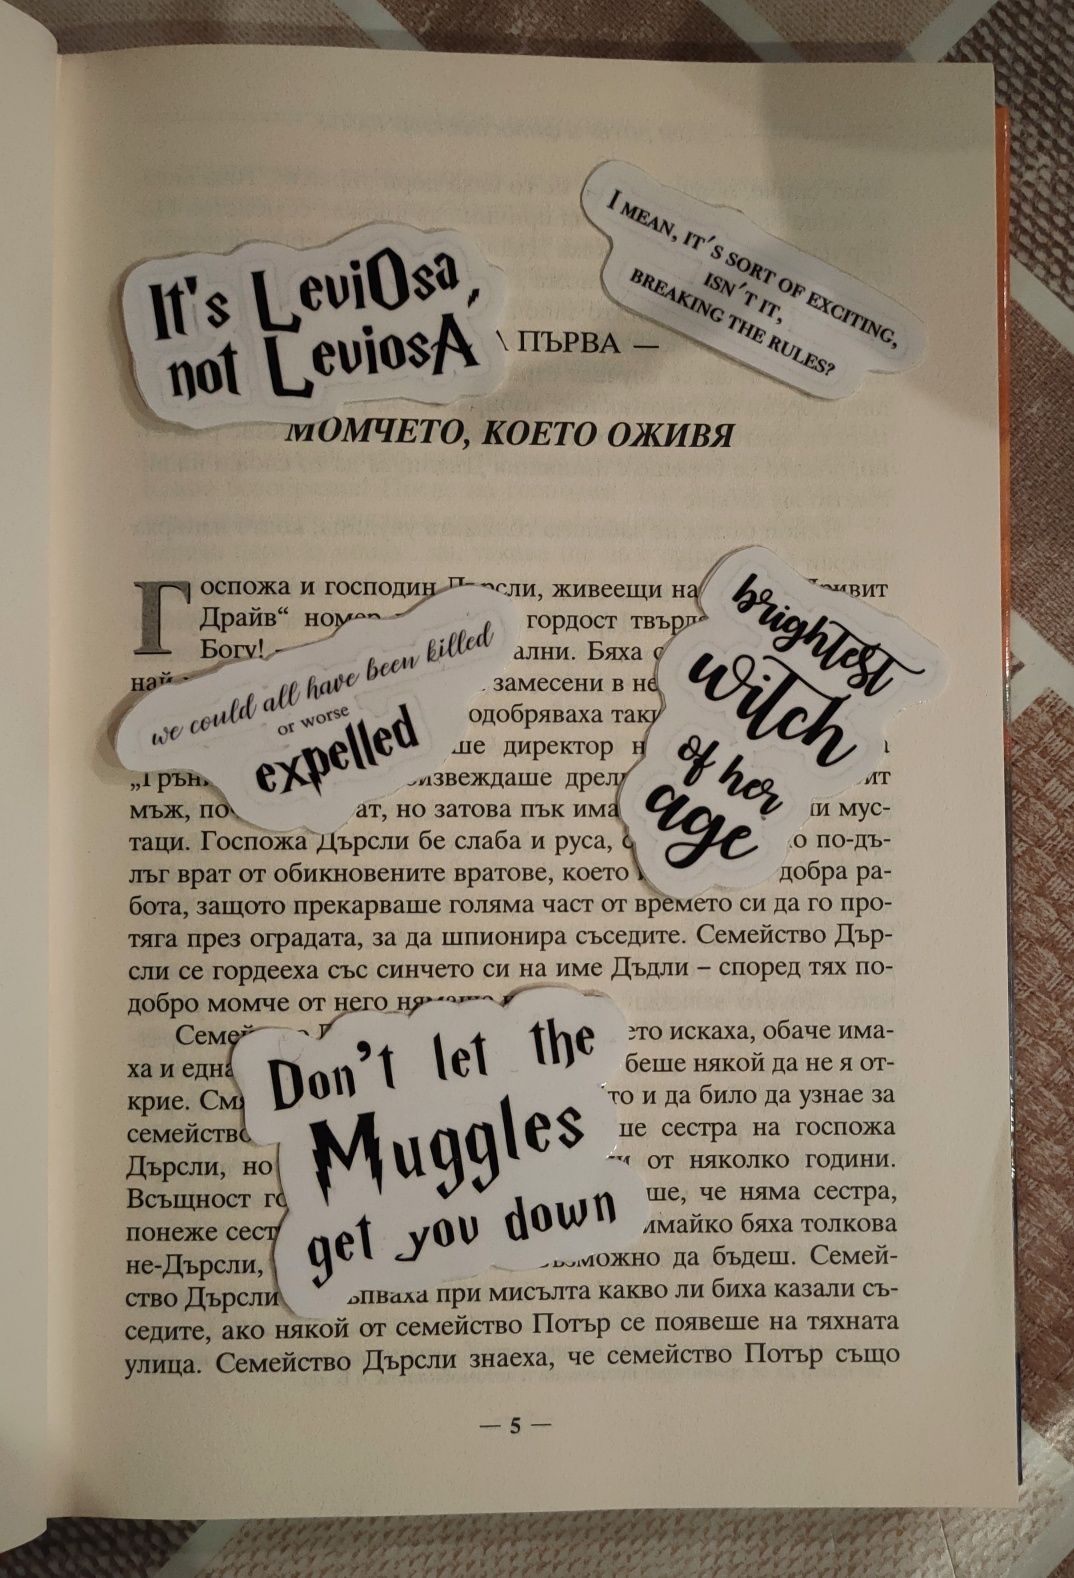 It's LeviOsa,
not LeviosA
I MEAN, IT'S SORT OF EXCITING,
ISN'T IT,
BREAKING THE RULES?
ПЪРВА —
МОМЧЕТО, КОЕТО ОЖИВЯ
Госпожа и господин Дърсли, живеещи на
Драйв“ гордост
Богу! Бяха
най замесени в
одобряваха
директор
мъж, но затова пък мус-
таци. Госпожа Дърсли бе слаба и руса, по-дъ-
лъг врат от обикновените вратове, което добра ра-
бота, защото прекарваше голяма част от времето си да го про-
тяга през оградата, за да шпионира съседите. Семейство Дър-
сли се гордееха със синчето си на име Дъдли – според тях по-
добро момче от него
искаха, обаче има-
ха и една беше някой да не я от-
крие. и да било да узнае за
семейство сестра на госпожа
Дърсли, но от няколко години.
Всъщност че няма сестра,
понеже бяха толкова
не-Дърсли, да бъдеш. Семей-
ство Дърсли при мисълта какво ли биха казали съ-
седите, ако някой от семейство Потър се появеше на тяхната
улица. Семейство Дърсли знаеха, че семейство Потър също
— 5 —
we could all have been killed
or worse
expelled
brightest
witch
of her
age
Don't let the
Muggles
get you down